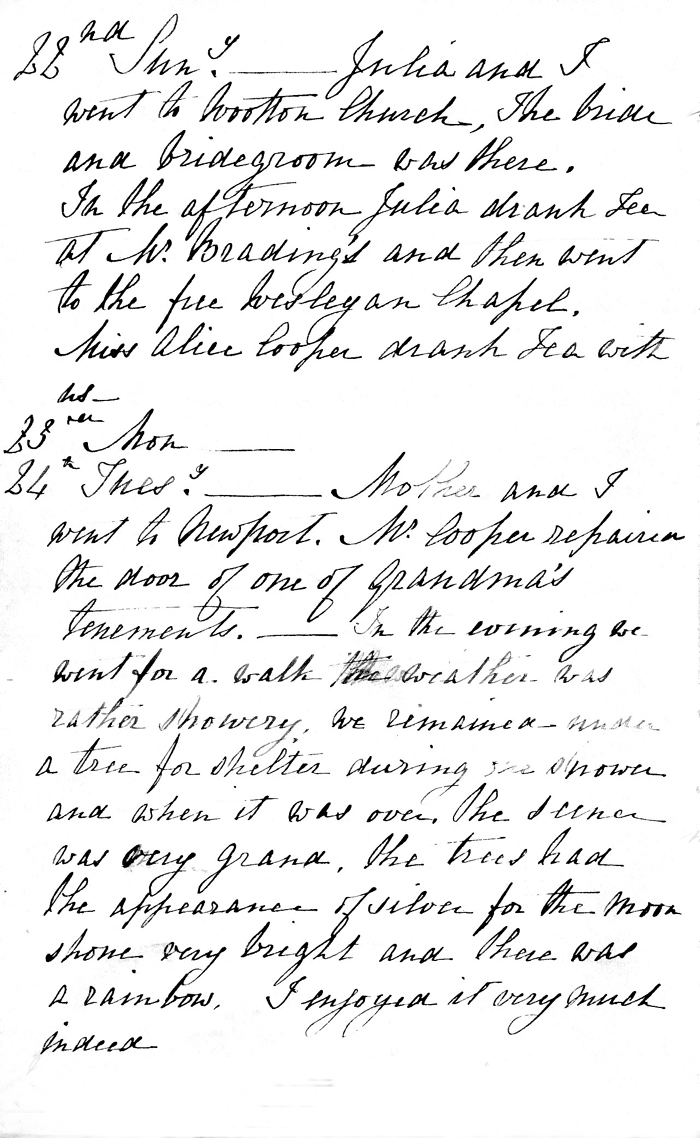 22nd Sun.y — Julia and I
went to Wootton Church, The bride
and bridegroom was there.
In the afternoon Julia drank Tea
at Mr. Brading's and then went
to the free Wesleyan Chapel.
Miss Alice Cooper drank Tea with
us—
23rd Mon —
24th Tues.y — Mother and I
went to Newport. Mr. Cooper repaired
the door of one of Grandma's
tenements. — In the evening we
went for a walk the weather was
rather showery, we remained under
a tree for shelter during one shower
and when it was over, the scene
was very grand, the trees had
the appearance of silver for the moon
shone very bright and there was
a rainbow. I enjoyed it very much
indeed